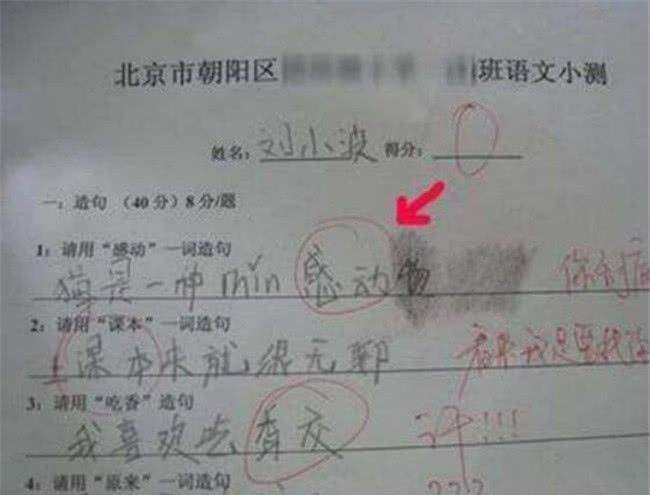 北京市朝阳区 班语文小测
姓名：刘小波 得分：0
一：造句 （40分）8分/题
1：请用“感动”一词造句
猫是一种mǐn感动物
2：请用“课本”一词造句
上课本来就很无聊
看来我是要
3：请用“吃香”造句
我喜欢吃香蕉
汗!!!
4：请用“原来”一词造句
???